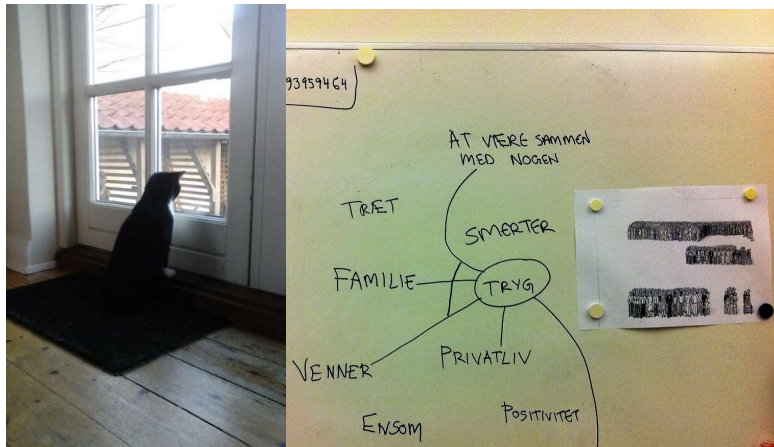 93959464
AT VÆRE SAMMEN
MED NOGEN
TRÆT
SMERTER
FAMILIE
TRYG
VENNER
PRIVATLIV
POSITIVITET
ENSOM